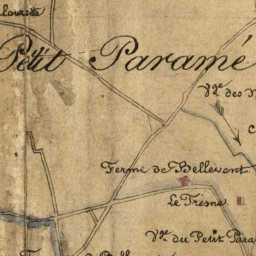 Petit Paramé
V.ge des
Ferme de Bellevent
Le Tresne
V.ge du Petit Para